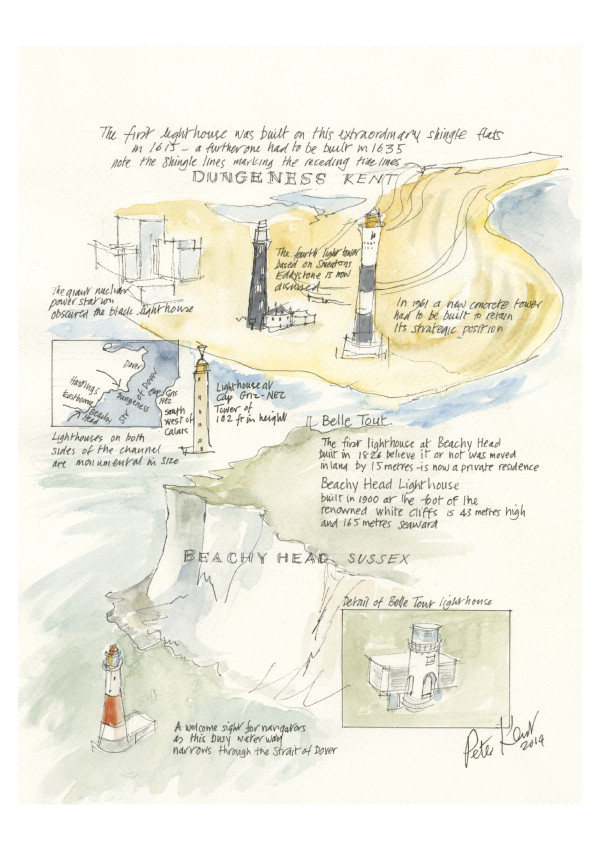 The first lighthouse was built on this extraordinary shingle flats
in 1615 - a further one had to be built in 1635
note the shingle lines marking the receding tide lines
DUNGENESS KENT
The fourth light tower
based on Smeatons
Eddystone is now
disused
The giant nuclear
power station
obscured the black lighthouse
In 1961 a new concrete tower
had to be built to retain
its strategic position
Dover
Hastings
Eastbourne
Beachy
Head
Dungeness
St of Dover
Cap Gris
Nez
South
west of
Calais
Lighthouse at
Cap Griz-Nez
Tower of
102 ft in height
Lighthouses on both
sides of the channel
are monumental in size
Belle Tout
The first lighthouse at Beachy Head
built in 1826 believe it or not was moved
inland by 15 metres - is now a private residence
Beachy Head Lighthouse
built in 1900 at the foot of the
renowned white cliffs is 43 metres high
and 165 metres seaward
BEACHY HEAD SUSSEX
Detail of Belle Tout lighthouse
A welcome sight for navigators
as this busy water way
narrows through the Strait of Dover
Peter Kent
2014